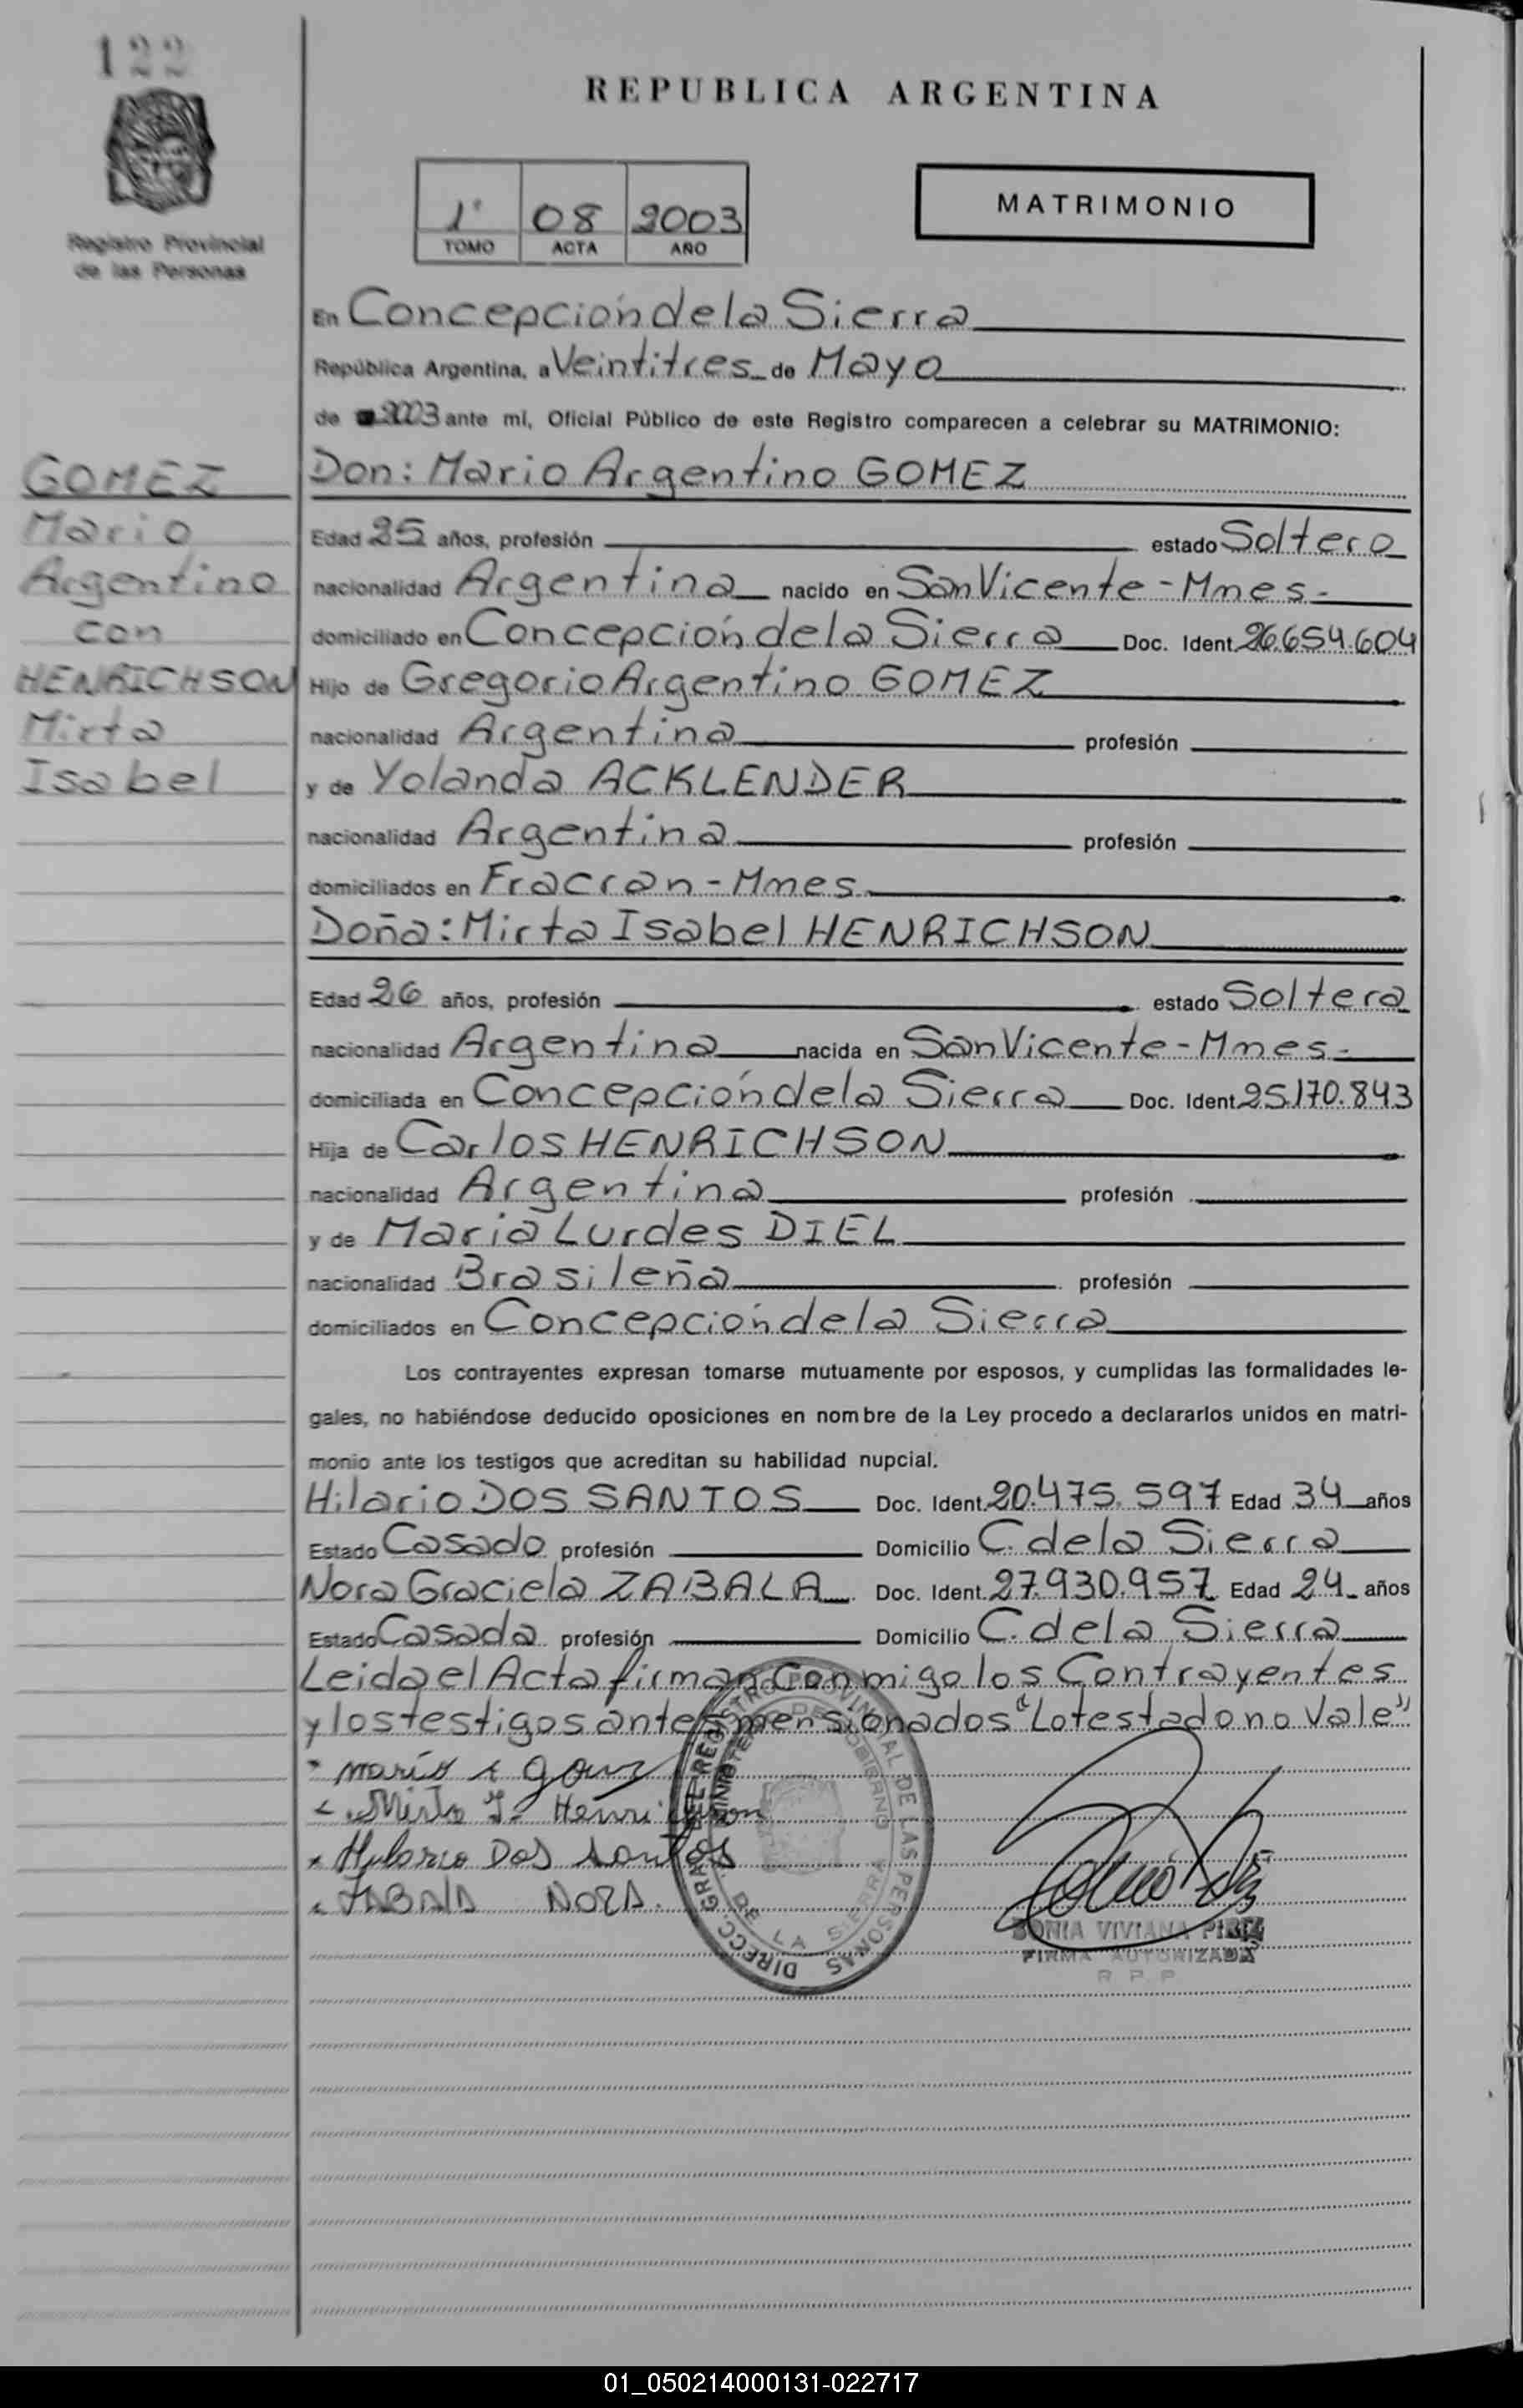 122
REPUBLICA ARGENTINA
Registro Provincial
de las Personas
1° 08 2003
TOMO ACTA AÑO
MATRIMONIO
En Concepción de la Sierra
República Argentina, a Veintitres de Mayo
de 2003 ante mí, Oficial Público de este Registro comparecen a celebrar su MATRIMONIO:
GOMEZ
Mario
Argentino
con
HENRICHSON
Mirta
Isabel
Don: Mario Argentino GOMEZ
Edad 25 años, profesión estado Soltero
nacionalidad Argentina nacido en San Vicente - Mnes.
domiciliado en Concepción de la Sierra Doc. Ident. 26.654.604
Hijo de Gregorio Argentino GOMEZ
nacionalidad Argentina profesión
y de Yolanda ACKLENDER
nacionalidad Argentina profesión
domiciliados en Fracran - Mnes.
Doña: Mirta Isabel HENRICHSON
Edad 26 años, profesión estado Soltera
nacionalidad Argentina nacida en San Vicente - Mnes.
domiciliada en Concepción de la Sierra Doc. Ident. 25.170.843
Hija de Carlos HENRICHSON
nacionalidad Argentina profesión
y de Maria Lurdes DIEL
nacionalidad Brasileña profesión
domiciliados en Concepción de la Sierra
Los contrayentes expresan tomarse mutuamente por esposos, y cumplidas las formalidades le-
gales, no habiéndose deducido oposiciones en nombre de la Ley procedo a declararlos unidos en matri-
monio ante los testigos que acreditan su habilidad nupcial.
Hilario DOS SANTOS Doc. Ident. 20.475.597 Edad 34 años
Estado Casado profesión Domicilio C. de la Sierra
Nora Graciela ZABALA Doc. Ident. 27.930.957 Edad 24 años
Estado Casada profesión Domicilio C. de la Sierra
Leida el Acta firman conmigo los Contrayentes
y los testigos antes mensionados "Lo testado no Vale"
Mirta I. Henrichson
Hilario Dos Santos
ZABALA NORA.
DIRECC. GRAL. DEL REGISTRO PROVINCIAL DE LAS PERSONAS
MINISTERIO DE GOBIERNO
DE LA SIERRA
SONIA VIVIANA PIREZ
FIRMA AUTORIZADA
R P P
01_050214000131-022717